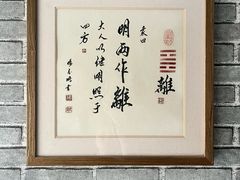 離
象曰
明兩作離
大人以繼明照于
四方